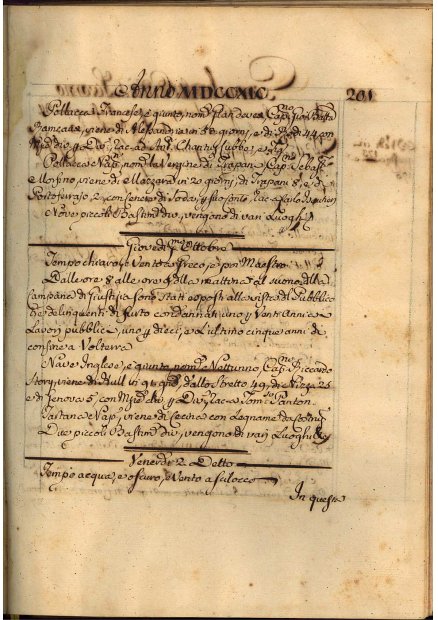 Anno MDCCXIC 201
Pollacca Francese, è giunto, nom.
viene di Alessandria in 58 giorni, e di 44 con
Pollacca Nap. nom. la Vergine di Trapani Cap. Sebast.
Morsino, viene di Mazzara in 20 giorni, di Trapani 8, e di
Portoferraio 2, con
Nove piccoli Bastim. div. vengono di vari Luoghi
Giovedì p.mo Ottobre
Tempo chiaro, e Vento a Greco, e poi Maestro
Dalle ore 8 alle ore 9 della mattina al suono della
Campana di Giustizia sono stati esposti alla vista del Pubblico
Tre delinquenti di furto condannati uno p. Venti Anni a
Lavori pubblici, uno p. dieci, e l'ultimo cinque anni di
confine a Volterra
Nave Inglese, è giunto nom. Notturno, Cap. Riccardo
Story, viene di Hull in 91 gni, dallo Stretto 49, di Nizza 25
e di Genova 5, con Mercdzie, p. Div. rac. a Tom.so Panton.
Tartana Nap. viene di Cecina con Legname da
Due piccoli Bastim. div. vengono di varj Luoghi
Venerdì 2 Detto
Tempo acqua, e oscuro, e Vento a Scilocco
In questa